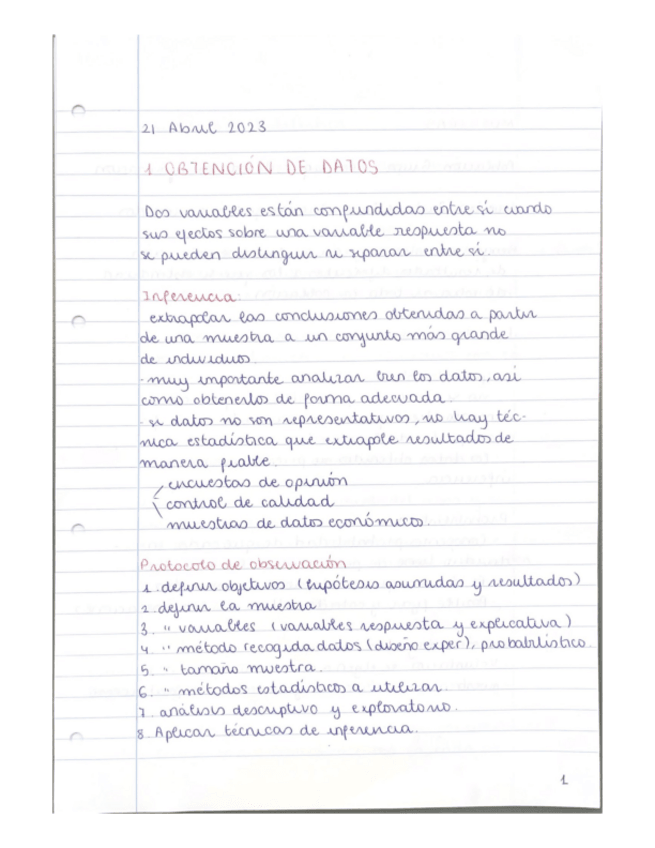 21 Abril 2023
1 OBTENCIÓN DE DATOS
Dos variables están confundidas entre sí cuando
sus efectos sobre una variable respuesta no
se pueden distinguir ni separar entre sí.
Inferencia:
extrapolar las conclusiones obtenidas a partir
de una muestra a un conjunto más grande
de individuos
-muy importante analizar bien los datos, así
como obtenerlos de forma adecuada.
- si datos no son representativos, no hay téc-
nica estadística que extrapole resultados de
manera fiable.
encuestas de opinión
control de calidad
muestras de datos económicos.
Protocolo de observación
1. definir objetivos (hipótesis asumidas y resultados)
2 definir la muestra
3. " variables (variables respuesta y explicativa)
4 " método recogida datos (diseño exper), probabilístico.
5. " tamaño muestra.
6. " métodos estadísticos a utilizar.
7. análisis descriptivo y exploratorio.
8. Aplicar técnicas de inferencia.
1